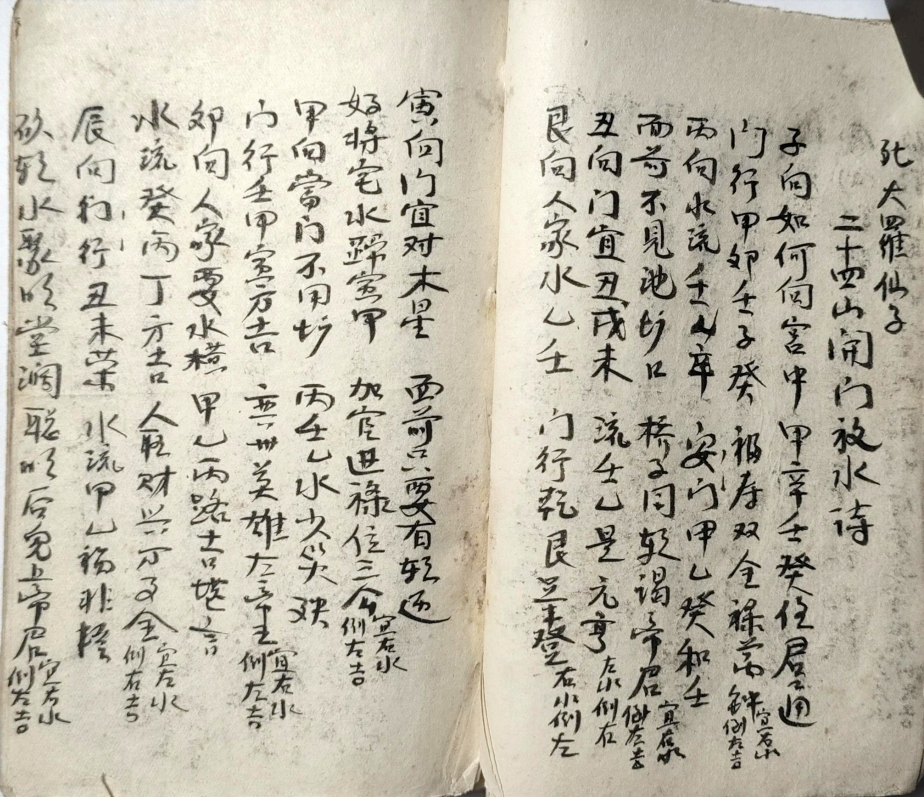 大羅仙子
二十四山開门放水诗
子向如何向宫中 甲辛壬癸任君通
门行甲卯壬子癸 福寿双全禄萬钟 宜右水倒左吉
丙向水流壬乙辛 安门甲乙癸和壬
面前不见池圹口 桥子同朝谒帝君 宜右水倒左吉
丑向门宜丑戌未 流壬乙是元亨 左水倒右
艮向人家水乙壬 门行乾艮登 右水倒左
寅向门宜对木星 面前只要有朝迎
好將宅水歸寅甲 加官进禄位三台 宜右水倒左吉
甲向當门不用圹 丙壬乙水少災殃
门行壬甲寅方吉 英雄左帝王 宜右水倒左吉
卯向人家要水横 甲乙丙路吉堪言
水流癸丙丁方吉 人旺财兴万事全 宜左水倒右吉
辰向门行丑未荣 水流甲乙福非轻
砍朝水聚明堂濶 聪明后見帝君 宜右水倒左吉